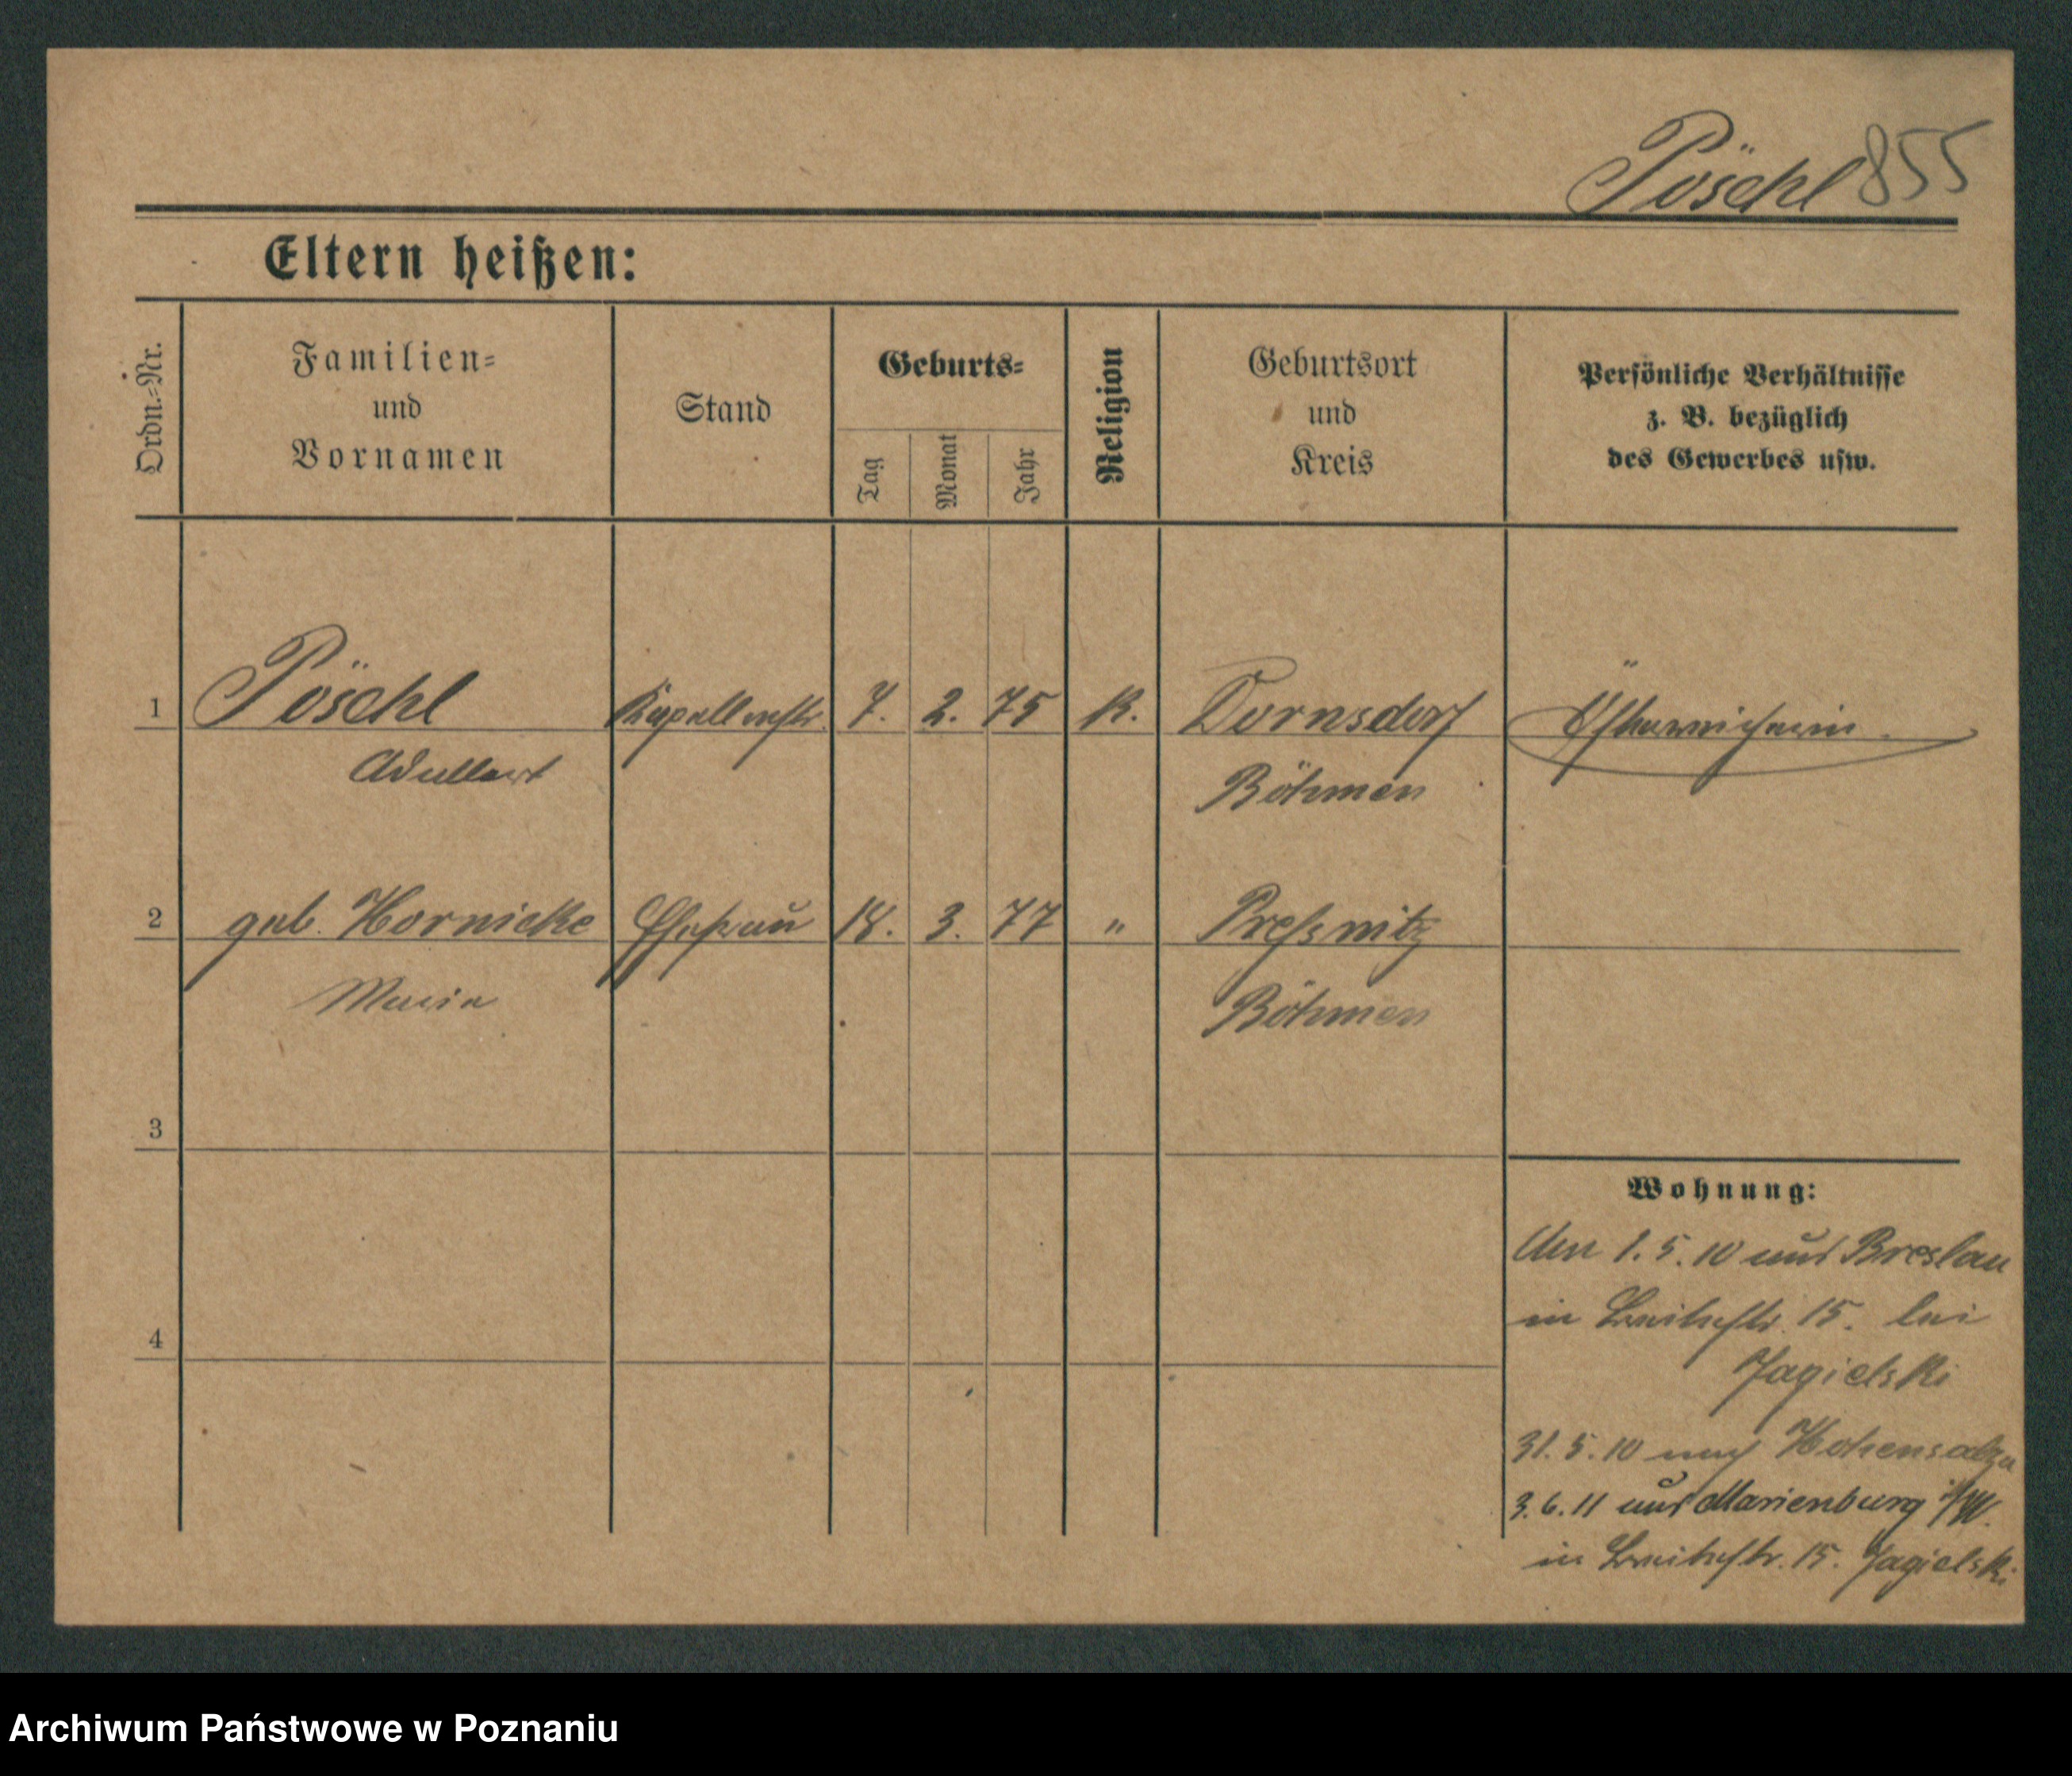 Pöschl 855
Eltern heißen:
Ordn.-Nr.
Familien-
und
Vornamen
Stand
Geburts-
Tag
Monat
Jahr
Religion
Geburtsort
und
Kreis
Persönliche Verhältnisse
z. B. bezüglich
des Gewerbes usw.
1 Pöschl Kapellmstr. 7. 2. 75 K. Dornsdorf
Adalbert Böhmen
2 geb. Hornicke Ehefrau 18. 3. 77 " Preßnitz
Maria Böhmen
3
4
Wohnung:
Am 1. 5. 10 aus Breslau
in Breitestr. 15. bei
Jagielski
31. 5. 10 nach Hohensalza
3. 6. 11 aus Marienburg i/W.
in Breitestr. 15. Jagielski
Archiwum Państwowe w Poznaniu